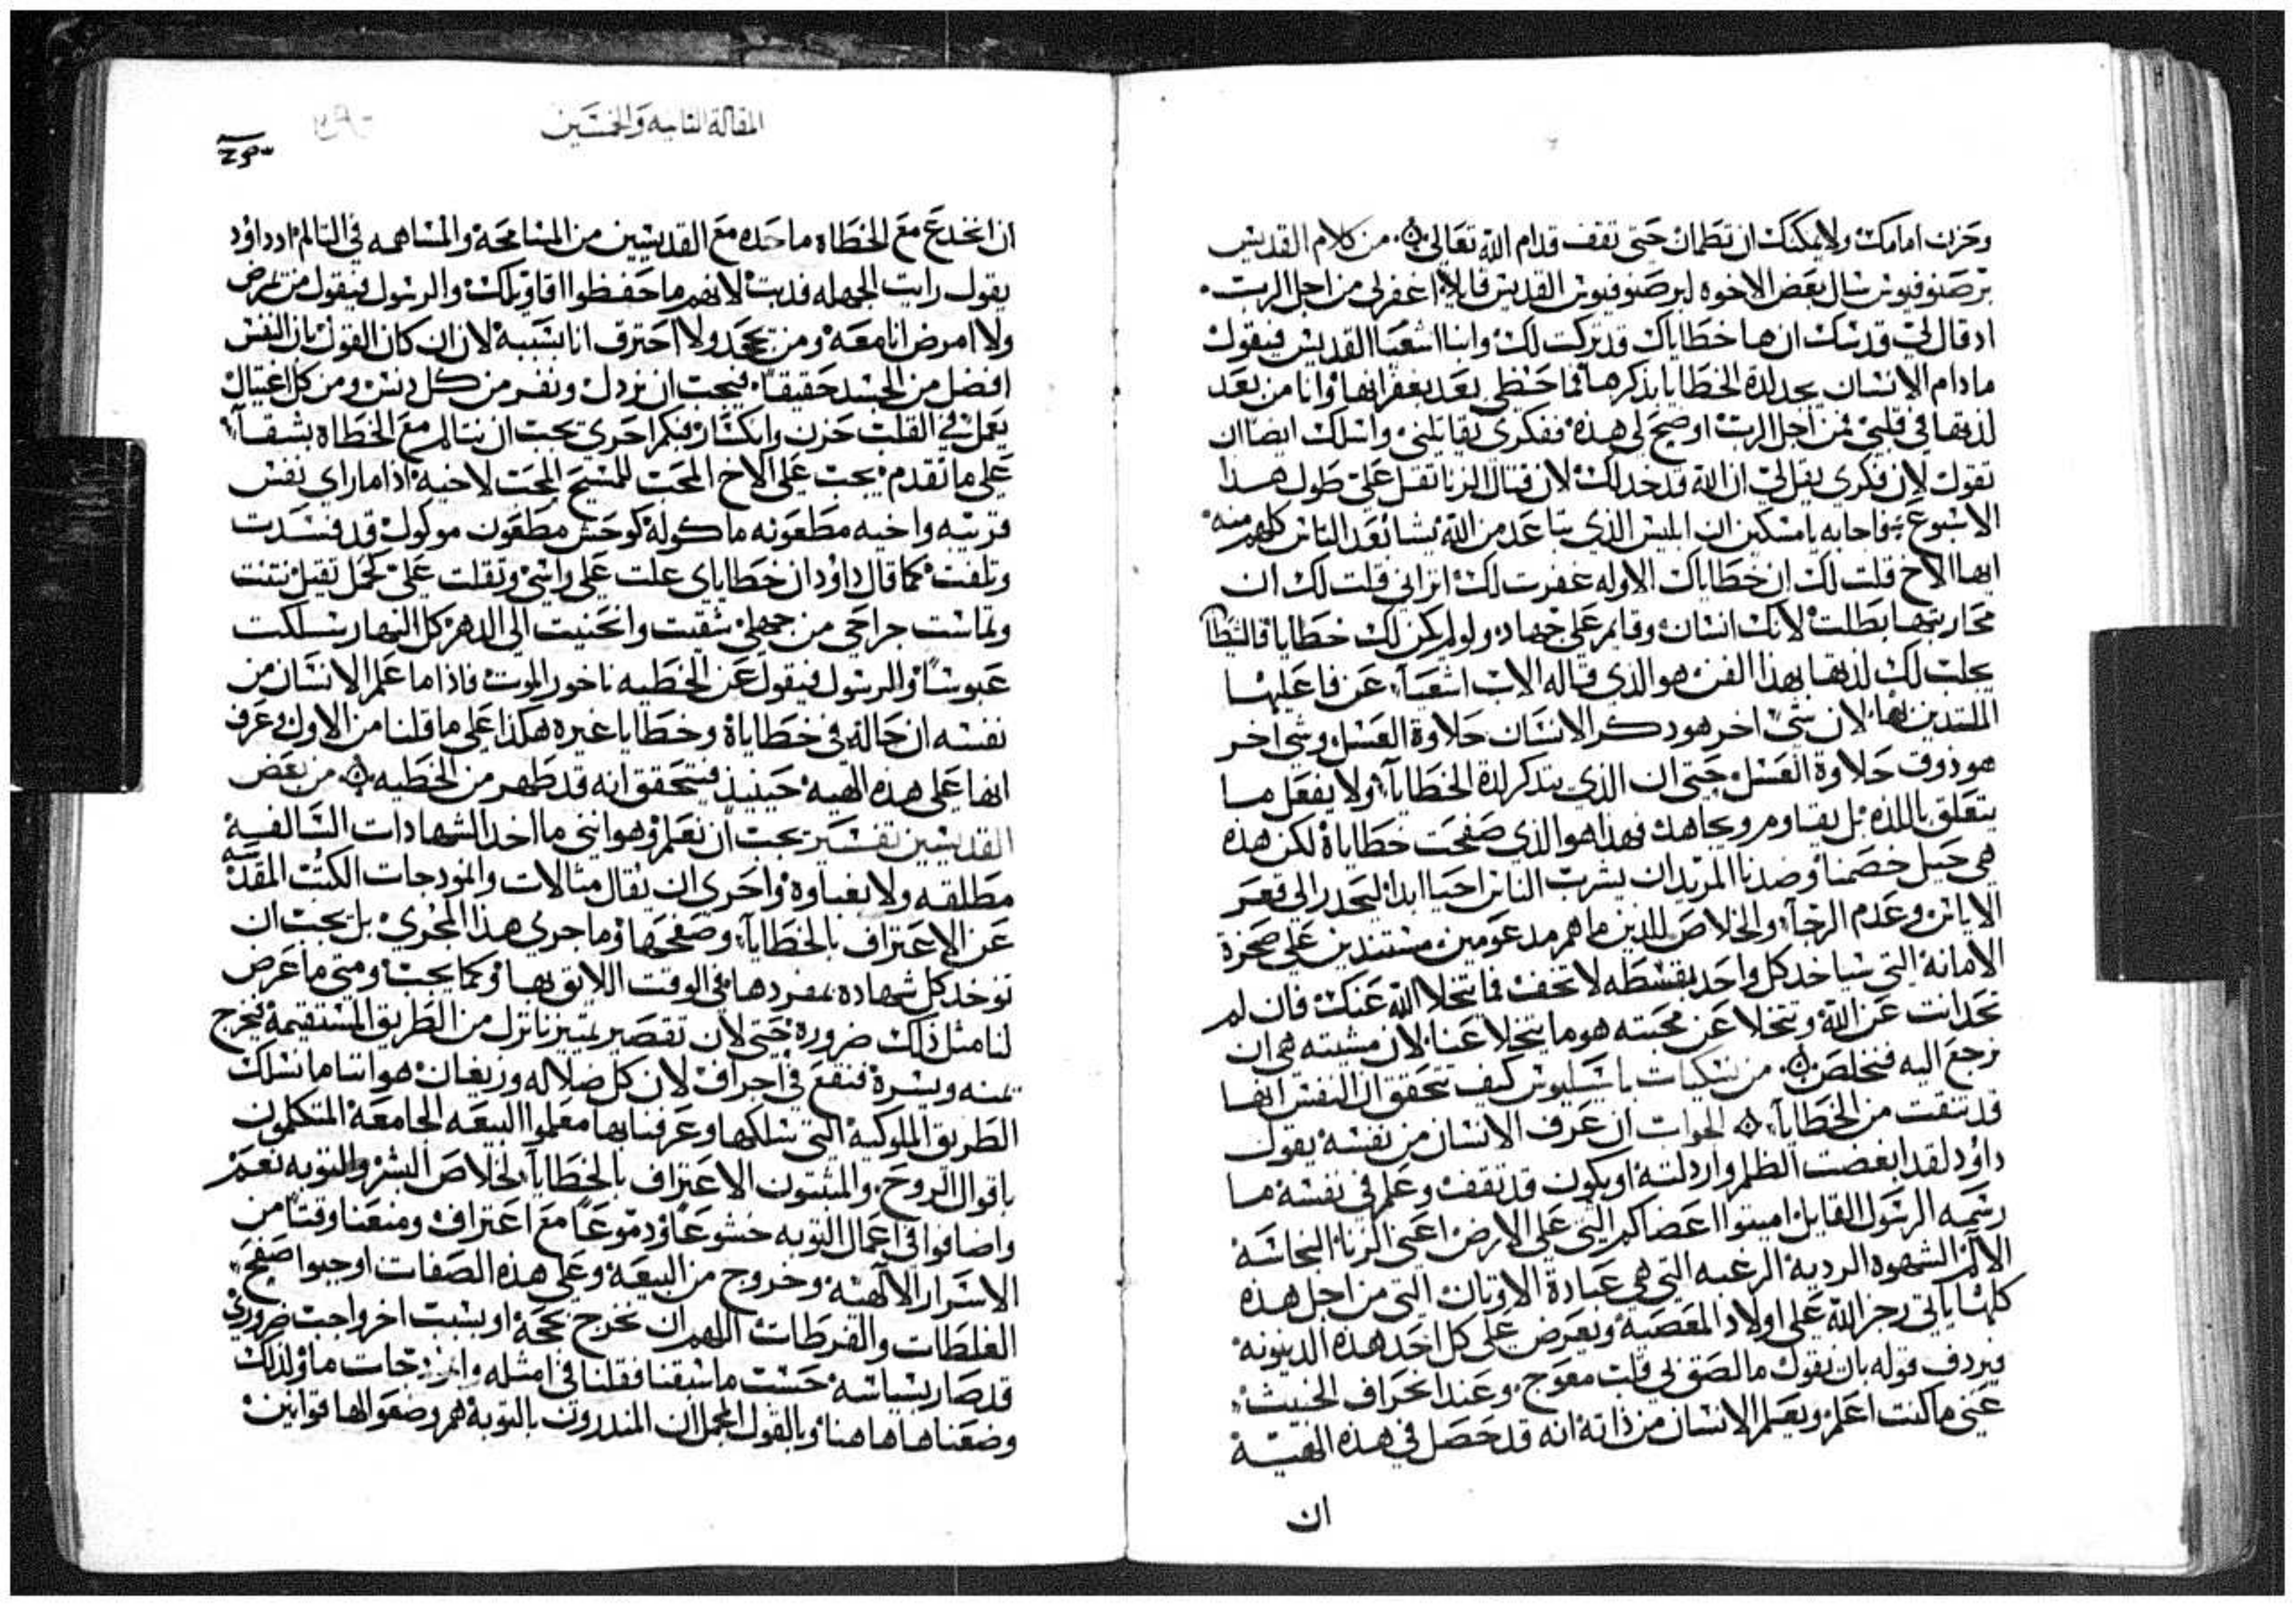 وحزنت امامك ولا يمكنك ان تطمان حتى تقف قدام الله تعالى ۞ من كلام القديس
برصنوفيوس سال بعض الاخوه لبرصنوفيوس القديس قايلا اغفر لي من اجل الرب
اد قال لي قدسك ان ها خطاياك قد تركت لك وانبا اشعيا القديس فيقول
مادام الانسان يجد لدة الخطايا بذكرها فما حظى بعد بغفرانها وانا من بعد
لذتها في قلبي فمن اجل الرب اوضح لي هذه ففكري يقاتلني واسلك ايضا ان
تقول لان فكري يقل لي ان الله قد خدلك لان قتال الزنا تقل علي طول هدا
الاسبوع فاجابه يا مسكين ان ابليس الذي تباعد من الله يشا بعد الناس كلهم منه
ايها الاخ قلت لك ان خطاياك الاوله غفرت لك اتراني قلت لك ان
محاربتها بطلت لانك انسان وقايم على جهاد ولو لم يكن لك خطايا فالشيطان
يجلب لك لذتها بهذا الفن هو الذي قاله الاب اشعيا عن فاعليها
الملتدين بها لان شي اخر هو دكر الانسان حلاوة العسل وشي اخر
هو ذوق حلاوة العسل حتى ان الذي يتدكر لدة الخطايا ولا يفعل ما
يتعلق باللذه بل يقاوم ويجاهد فهذا هو الذي صفحت خطاياه لكن هذه
هي حيل خصمنا وضدنا المريد ان يشرب الناس احيا ابدا ليحدر الى قعر
الاياس وعدم الرجا والخلاص للذين ما هم مدعومين مستندين على صخرة
الامانه التي سياخد كل واحد بقسطه لا تخف فما يتخلا الله عنك فان لم
تحد انت عن الله وتتخلا عن محبته هو ما يتخلا عنا لان مشيته هي ان
نرجع اليه فنخلص ۞ من نسكيات باسيليوس كيف تتحقق ان النفس انها
قد تنقت من الخطايا ۞ الجواب ان عرف الانسان من نفسه يقول
داؤد لقد ابغضت الظلم واردلته او يكون قد تقف وعلم في نفسه ما
رسمه الرسول القايل اميتوا اعضاكم التي على الارض اعني الزنا النجاسه
الالم الشهوه الرديه الرغبه التي هي عبادة الاوتان التي من اجل هذه
كلها ياتي رجز الله على اولاد المعصيه ويعرض على كل احد هذه الدينونه
فيردف قوله بان يقول ما لصق بي قلب معوج وعند انحراف الخبيث
عني ما كنت اعلم ويعلم الانسان من ذاته انه قد حصل في هذه الهيية
ان
المقالة الثانيه والخمسين
ان انخدع مع الخطاه ما حده مع القديسين من المسامحة والمساهمه في التالم اد داود
يقول رايت الجهله فدبت لانهم ما حفظوا اقاويلك والرسول فيقول من تمرض
ولا امرض انا معه ومن يجحد ولا احترق انا بسببه لان ان كان القول بان النفس
افضل من الجسد حقيقا فيجب ان نردل وننفر من كل دنس ومن كل اغتيال
يعمل في القلب حزن وانكسار فبكم احرى يجب ان نتالم مع الخطاه بشقا
على ما تقدم يجب على الاخ المحب للمسيح المحب لاخيه اذا ما راى نفس
قريبه واخيه مطعونه ماكوله كوحش مطعون موكول قد فسدت
وتلفت كما قال داؤد ان خطاياي علت على راسي وتقلت علي كحمل تقيل نتنت
وتماست جراحي من جهلي شقيت وانحنيت الى الدهر كل النهار سلكت
عبوسا والرسول فيقول عن الخطيه ناخور الموت فاذا ما علم الانسان من
نفسه ان حاله في خطاياه وخطايا غيره هكذا على ما قلنا من الاول وعرف
انها على هذه الهيه حينيذ فيتحقق انه قد طهر من الخطيه ۞ من بعض
القديسين تفسير يجب ان نعلم وهو انني ما اخد الشهادات السالفيه
مطلقه ولا بغباوة واحرى ان يقال مثالات وانمودجات الكتب المقدسه
عن الاعتراف بالخطايا وصفحها وما جرى هذا المجرى بل يجب ان
توخد كل شهاده بمفردها في الوقت اللايق بها وكما يجب ومتى ما عرض
لنا مثل ذلك ضرورة حتى لان تقصير تمييزنا نزل من الطريق المستقيمه فنخرج
يمنه ويسرة فنقع في اجراف لان كل ضلاله وزيغان هو اننا ما نسلك
الطريق الملوكيه التي سلكها وعرفنا بها معلموا البيعه الجامعه المتكلمون
باقوال الروح والمثبتون الاعتراف بالخطايا لخلاص البشر والتوبه نعم
واضافوا في اعمال التوبه خشوعا ودموعا مع اعتراف ومنعنا وقتا من
الاسرار الالهيه وخروج من البيعه وعلى هذه الصفات اوجبوا صفح
الغلطات والفرطات اللهم ان نخرج بحجة او بسبب اخر واجب ضروري
قد صار بسياسه حسب ما سبقنا فقلنا في امثله وانمودجات ما ولذلك
وضعناها هاهنا وبالقول المجمل ان المندرون بالتوبه هم وضعوا لها قوانين